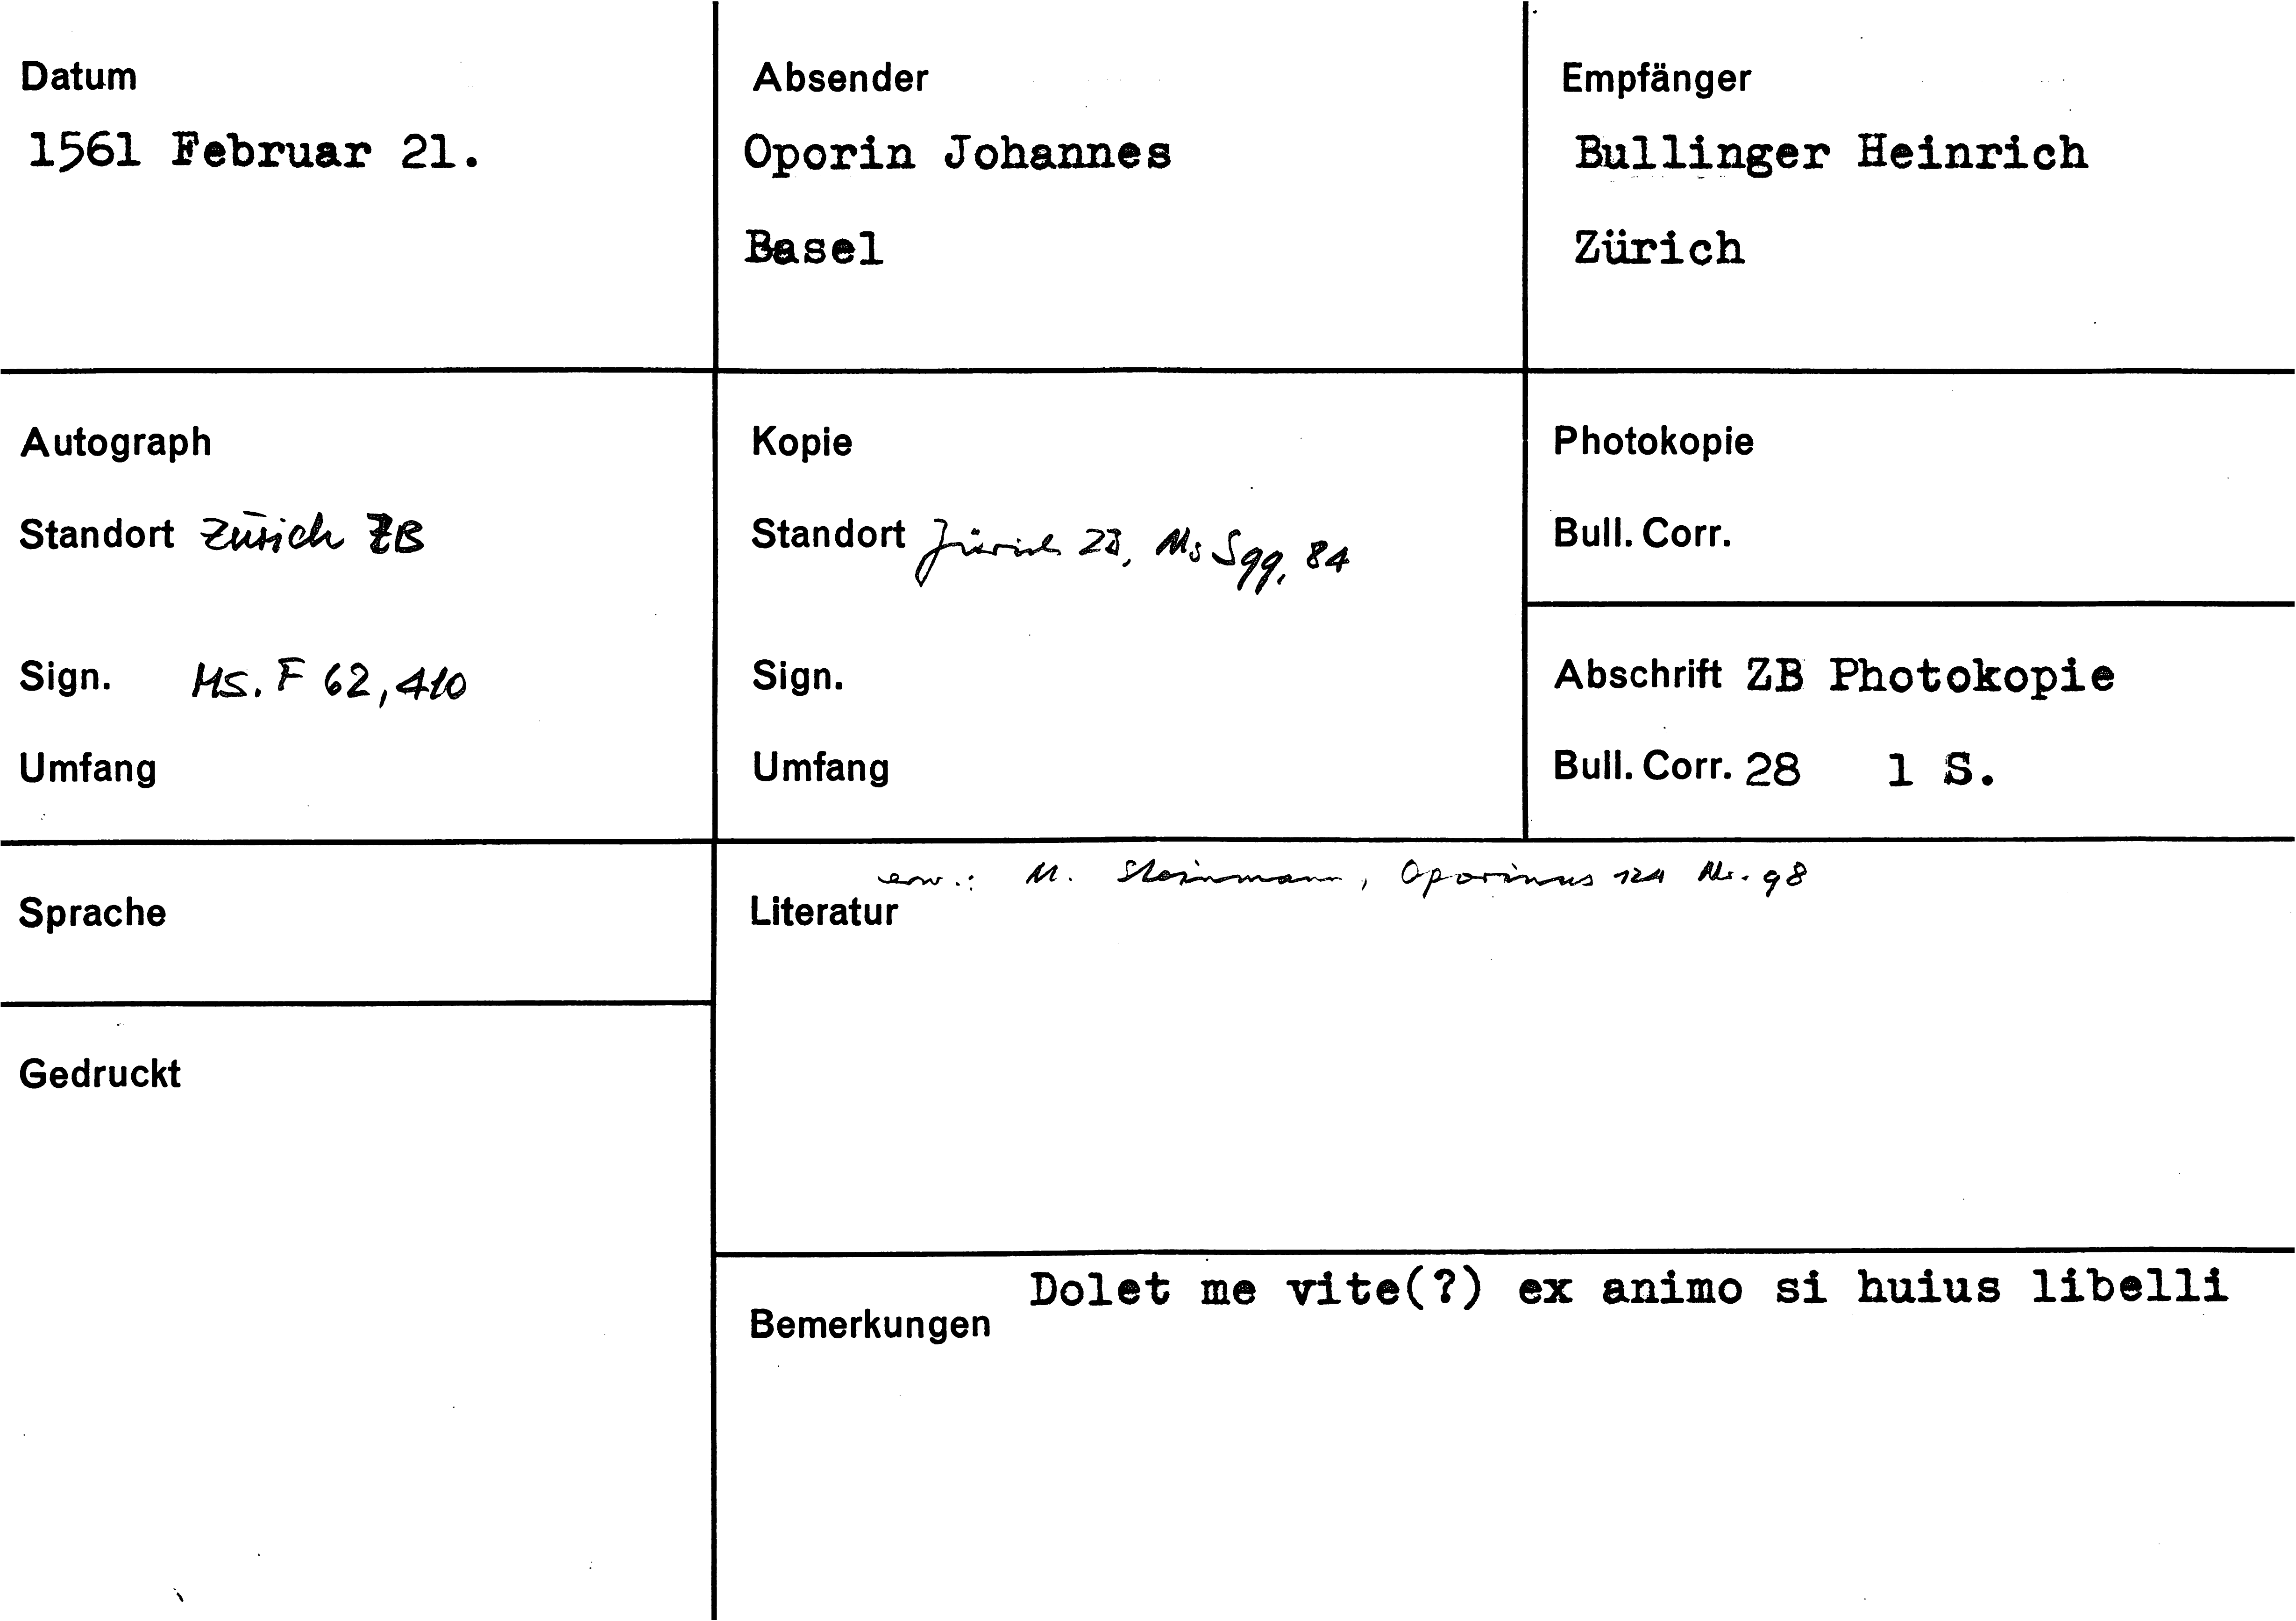 Datum
1561 Februar 21.
Absender
Oporin Johannes
Basel
Empfänger
Bullinger Heinrich
Zürich
Autograph
Standort Zürich ZB
Sign. MS. F 62, 410
Umfang
Kopie
Standort Zürich ZB, Ms S 99, 84
Sign.
Umfang
Photokopie
Bull. Corr.
Abschrift ZB Photokopie
Bull. Corr. 28 1 S.
Sprache
Gedruckt
erw.: M. Steinmann, Oporinus 124 Nr. 98
Literatur
Dolet me vite(?) ex animo si huius libelli
Bemerkungen